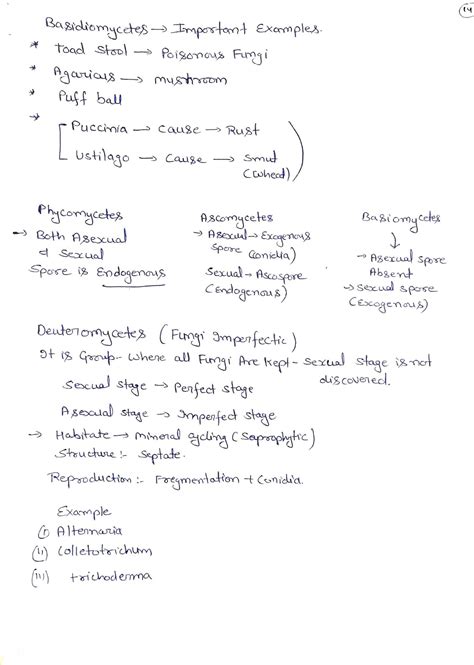 14
Basidiomycetes → Important Examples.
* Toad Stool → Poisonous Fungi
* Agaricus → mushroom
* Puff ball
→ Puccinia → cause → Rust
Ustilago → cause → Smut
(wheat)
Phycomycetes
→ Both Asexual
& Sexual
Spore is Endogenous
Ascomycetes
→ Asexual → Exogenous
Spore (Conidia)
Sexual → Ascospore
(Endogenous)
Basiomycetes
↓
→ Asexual spore
Absent
→ Sexual spore
(Exogenous)
Deuteromycetes (Fungi Imperfectic)
It is Group- where all Fungi Are Kept - Sexual Stage is not
discovered.
Sexual Stage → Perfect stage
Asexual stage → Imperfect stage
→ Habitate → mineral cycling (Saprophytic)
Structure :- Septate.
Reproduction :- Fregmentation + Conidia.
Example
(i) Alternaria
(ii) Colletotrichum
(iii) trichoderma